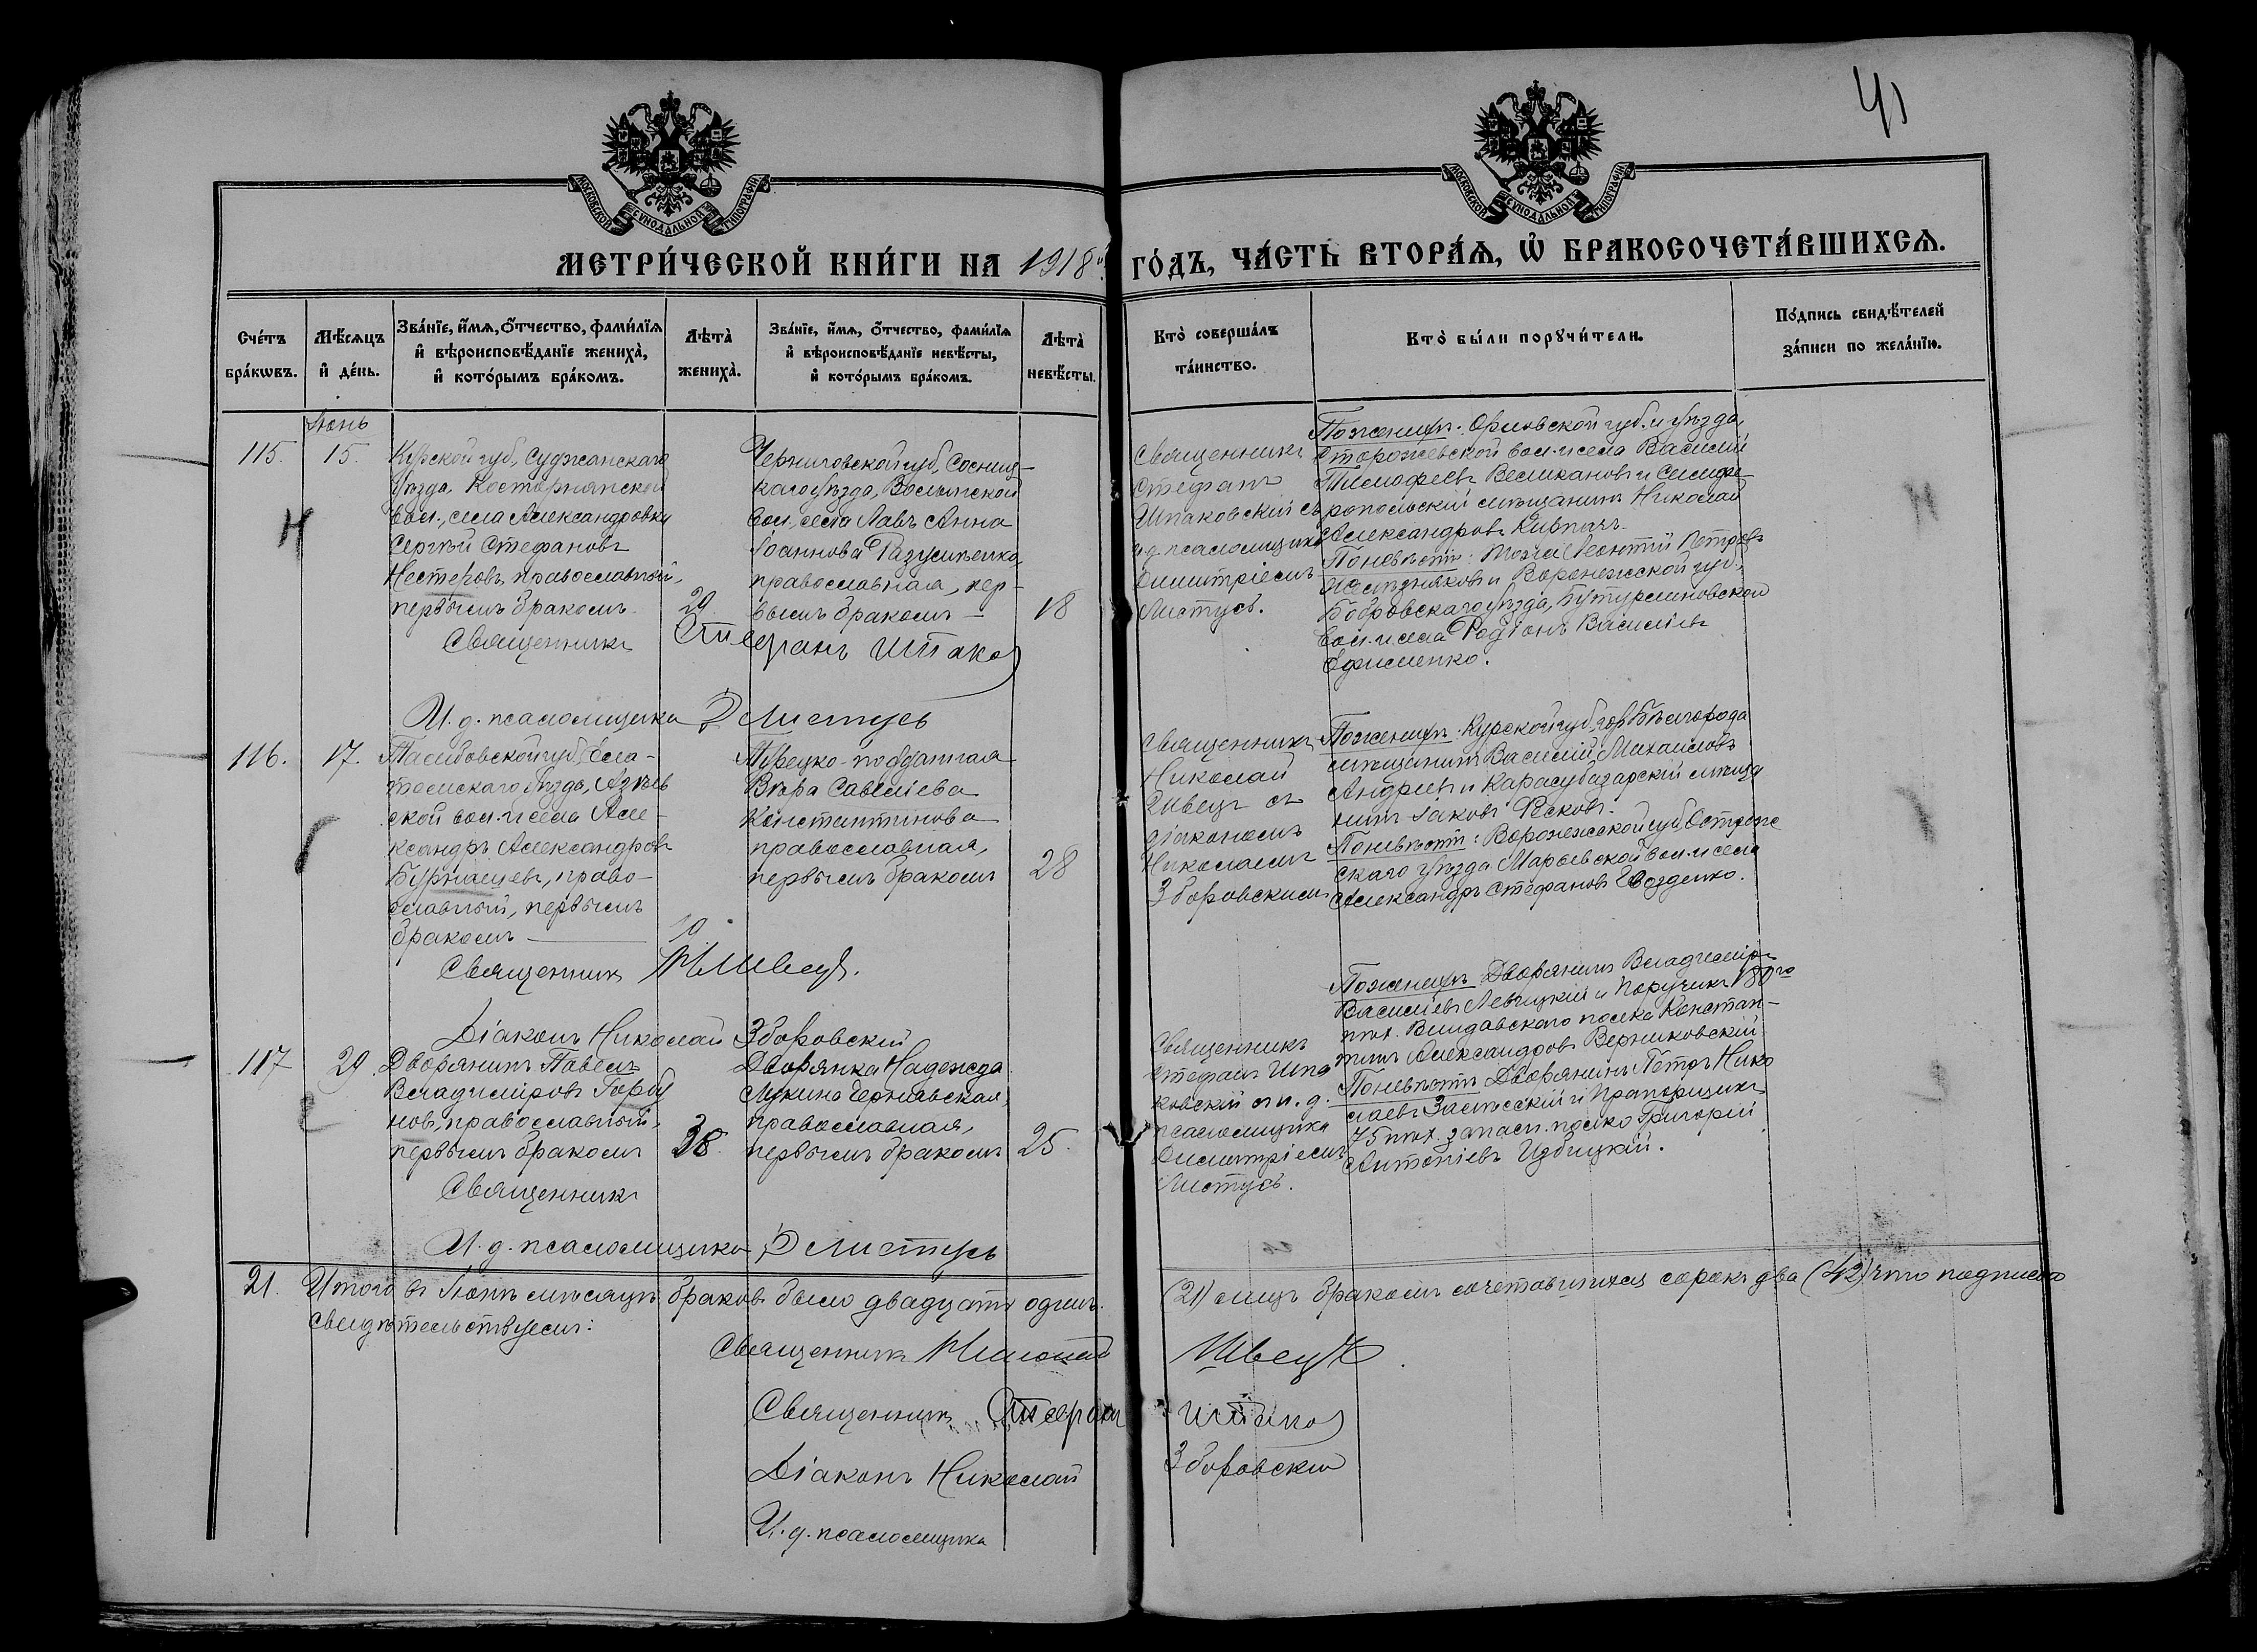 41
МОСКОВСКОЙ СѴНОДАЛЬНОЙ ТИПОГРАФІИ
МОСКОВСКОЙ СѴНОДАЛЬНОЙ ТИПОГРАФІИ
МЕТРИ́ЧЕСКОЙ КНИ́ГИ НА 1918й ГО́ДЪ, ЧА́СТЬ ВТОРА́Я, Ѡ҆ БРАКОСОЧЕТА́ВШИХСЯ.
Сче́тъ бра́кѡвъ.
Мѣ́сяцъ и҆ де́нь.
Зва́нїе, и҆́мя, ѻ҆́тчество, фами́лїя и҆ вѣроисповѣ́данїе жениха̀, и҆ кото́рымъ бра́комъ.
Лѣта̀ жениха̀.
Зва́нїе, и҆́мя, ѻ҆́тчество, фами́лїя и҆ вѣроисповѣ́данїе невѣ́сты, и҆ кото́рымъ бра́комъ.
Лѣта̀ невѣ́сты.
Кто̀ соверша́лъ та́инство.
Кто̀ бы́ли порꙋчи́тели.
По́дпись свидѣ́телей за́писи по жела́нїю.
Іюнь
115.
15.
Курской губ., Суджанскаго
уѣзда, Косторнянской
вол., села Александровки
Сергѣй Стефановъ
Нестеровъ, православный,
первымъ бракомъ
29.
Черниговской губ., Сосниц-
каго уѣзда, Волынской
вол., села Лавъ Анна
Іоаннова Разумѣенко,
православная, пер-
вымъ бракомъ —
18
Священникъ
Стефанъ
Шпаковскій съ
и. д. псаломщика
Димитріемъ
Листусъ.
По женихѣ: Орловской губ. и уѣзда,
Сторожевской вол. и села Василій
Тимофеевъ Великановъ и Симфе-
ропольский мѣщанинъ Николай
Александровъ Кирпачъ.
По невѣстѣ: Леонтій Петровъ
Желѣзняковъ и Воронежской губ.,
Бобровскаго уѣзда, Бутурлиновской
вол. и села Родіонъ Василіевъ
Ефименко.
Священникъ Стефанъ Шпако
И. д. псаломщика Д Листусъ
116.
17.
Тамбовской губ., Ела-
томскаго уѣзда, Азѣев
ской вол. и села Але-
ксандръ Александровъ
Бурнашевъ, право-
славный, первымъ
бракомъ —
Турецко-подданная
Вѣра Савеліева
Константинова
православная,
первымъ бракомъ
28
Священникъ
Николай
Швецъ съ
діакономъ
Николаемъ
Зборовскимъ
По женихѣ: Курской губ., гор. Бѣлгорода
мѣщанинъ Василій Михаиловъ
Андреевъ и Карасубазарскій мѣща
нинъ Іаковъ Фесковъ.
По невѣстѣ: Воронежской губ., Острогож
скаго уѣзда Марьевской вол. и села
Александръ Стефановъ Гвозденко.
Священникъ Н Швецъ.
Діаконъ Николай Зборовскій
117
29
Дворянинъ Павелъ
Владиміровъ Горбу
новъ, православный,
первымъ бракомъ
38.
Дворянка Надежда
Лукина Чернявская,
православная,
первымъ бракомъ
25.
Священникъ
Стефанъ Шпа
ковскій съ и. д.
псаломщика
Димитріемъ
Листусъ.
По женихѣ: Дворянинъ Владиміръ
Василіевъ Левицкій и Поручикъ 180го
пѣх. Виндавского полка Констан-
тинъ Александровъ Верниковскій
По невѣстѣ: Дворянинъ Петръ Нико
лаевъ и Прапорщикъ
75 пѣх. запасн. полка Григорій
Антоніевъ Избицкій.
Священникъ
И. д. псаломщика Д Листусъ
21. Итого въ Іюнѣ мѣсяцѣ браковъ было двадцать одинъ (21) лицъ бракомъ сочетавшихся сорокъ два (42) что подписью
свидѣтельствуемъ:
Священникъ Николай Швецъ.
Священникъ Стефанъ Шпако
Діаконъ Николай Зборовскій
И. д. псаломщика